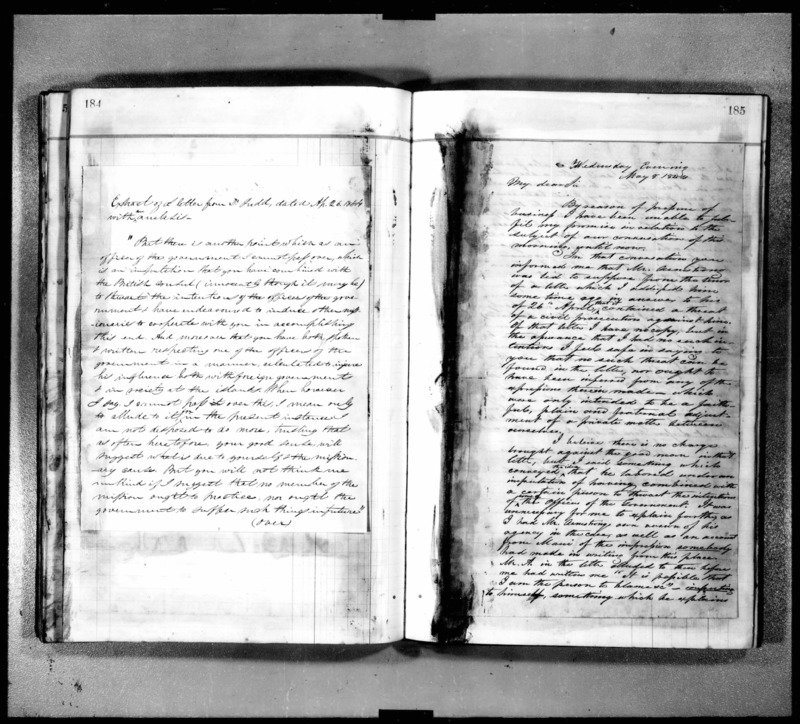 184
Extract of a letter from Dr Judd, dated Ap. 26. 1844
with
"But there is another point which as an
officer of the government I cannot pass over, which
is an imputation that you have combined with
the British Consul (innocently though it may be)
to thwart the intentions of the officers of the gove-
rnment & have endeavoured to induce other mis-
ioneries to cooperate with you in accomplishing
this end. And moreover that you have both spoken
& written respecting one of the officers of the
government in a manner calculated to injure
his influence both with foreign governments
& in society at the islands. When however
I say I cannot pass it over this, I mean only
to allude to it, in the present instance I
am not disposed to do more, trusting that
as often heretofore, your good sense will
suggest what is due to yourself & the mission-
ary cause. But you will not think me
unkind if I suggest that no member of the
mission ought to practice, nor ought the
government to suffer such things in future"
(over)
185
Wednesday Evening
May 8 1844
My dear Sir
By reason of pressure of
business I have been unable to ful-
fil my promise in relation to the
subject of our conversation of this
morning, until now.
In that conversation you
informed me that Mr. Armstrong
was led to suppose from the tenor
of a letter which I addressed him
some time ago in answer to his
of 24th April, contained a threat
of a civil prosecution against him.
Of that letter I have no copy, but in
the assurance that I had no such in-
tentions I feel safe in saying to
you that no such threat can be
found in the letter, nor ought to
have been inferred from any of the
expressions therein made which
were only intended to be a faith-
ful, plain and fraternal adjust-
ment of a private matter between
ourselves.
I believe there is no charge
brought against the good man in that
letter, but I said something which
conveyed that he labored under an
imputation of having combined with
a certain person to thwart the intention
of the Officers of the Government. It was
unnecessary for me to explain further as
I had Mr. Armstrong's own avowal of his
agency in the case, as well as an account
from Maui of the impression somebody
had made in writing from this place.
Mr. A. in the letter alluded to then before
me had written me "It is possible that
I am the person to blame in"
to himself, something which he explains